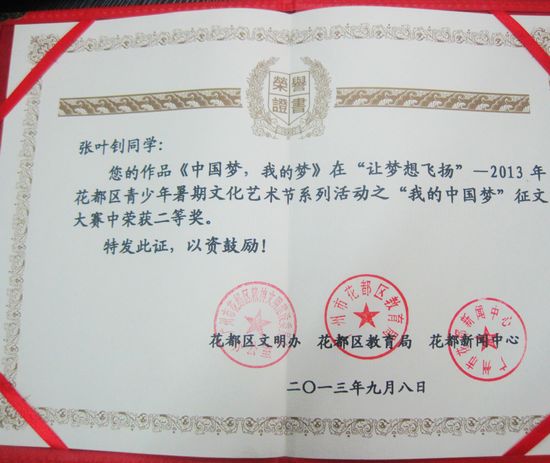 榮譽
證書
张叶钊同学：
您的作品《中国梦，我的梦》在“让梦想飞扬”—2013年
花都区青少年暑期文化艺术节系列活动之“我的中国梦”征文
大赛中荣获二等奖。
特发此证，以资鼓励！
花都区文明办 花都区教育局 花都新闻中心
二〇一三年九月八日
广州市花都区教育局